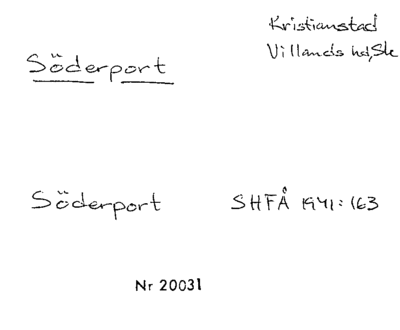 Kristianstad
Villands hd, Sk
Söderport
Söderport SHFÅ 1941:163
Nr 20031